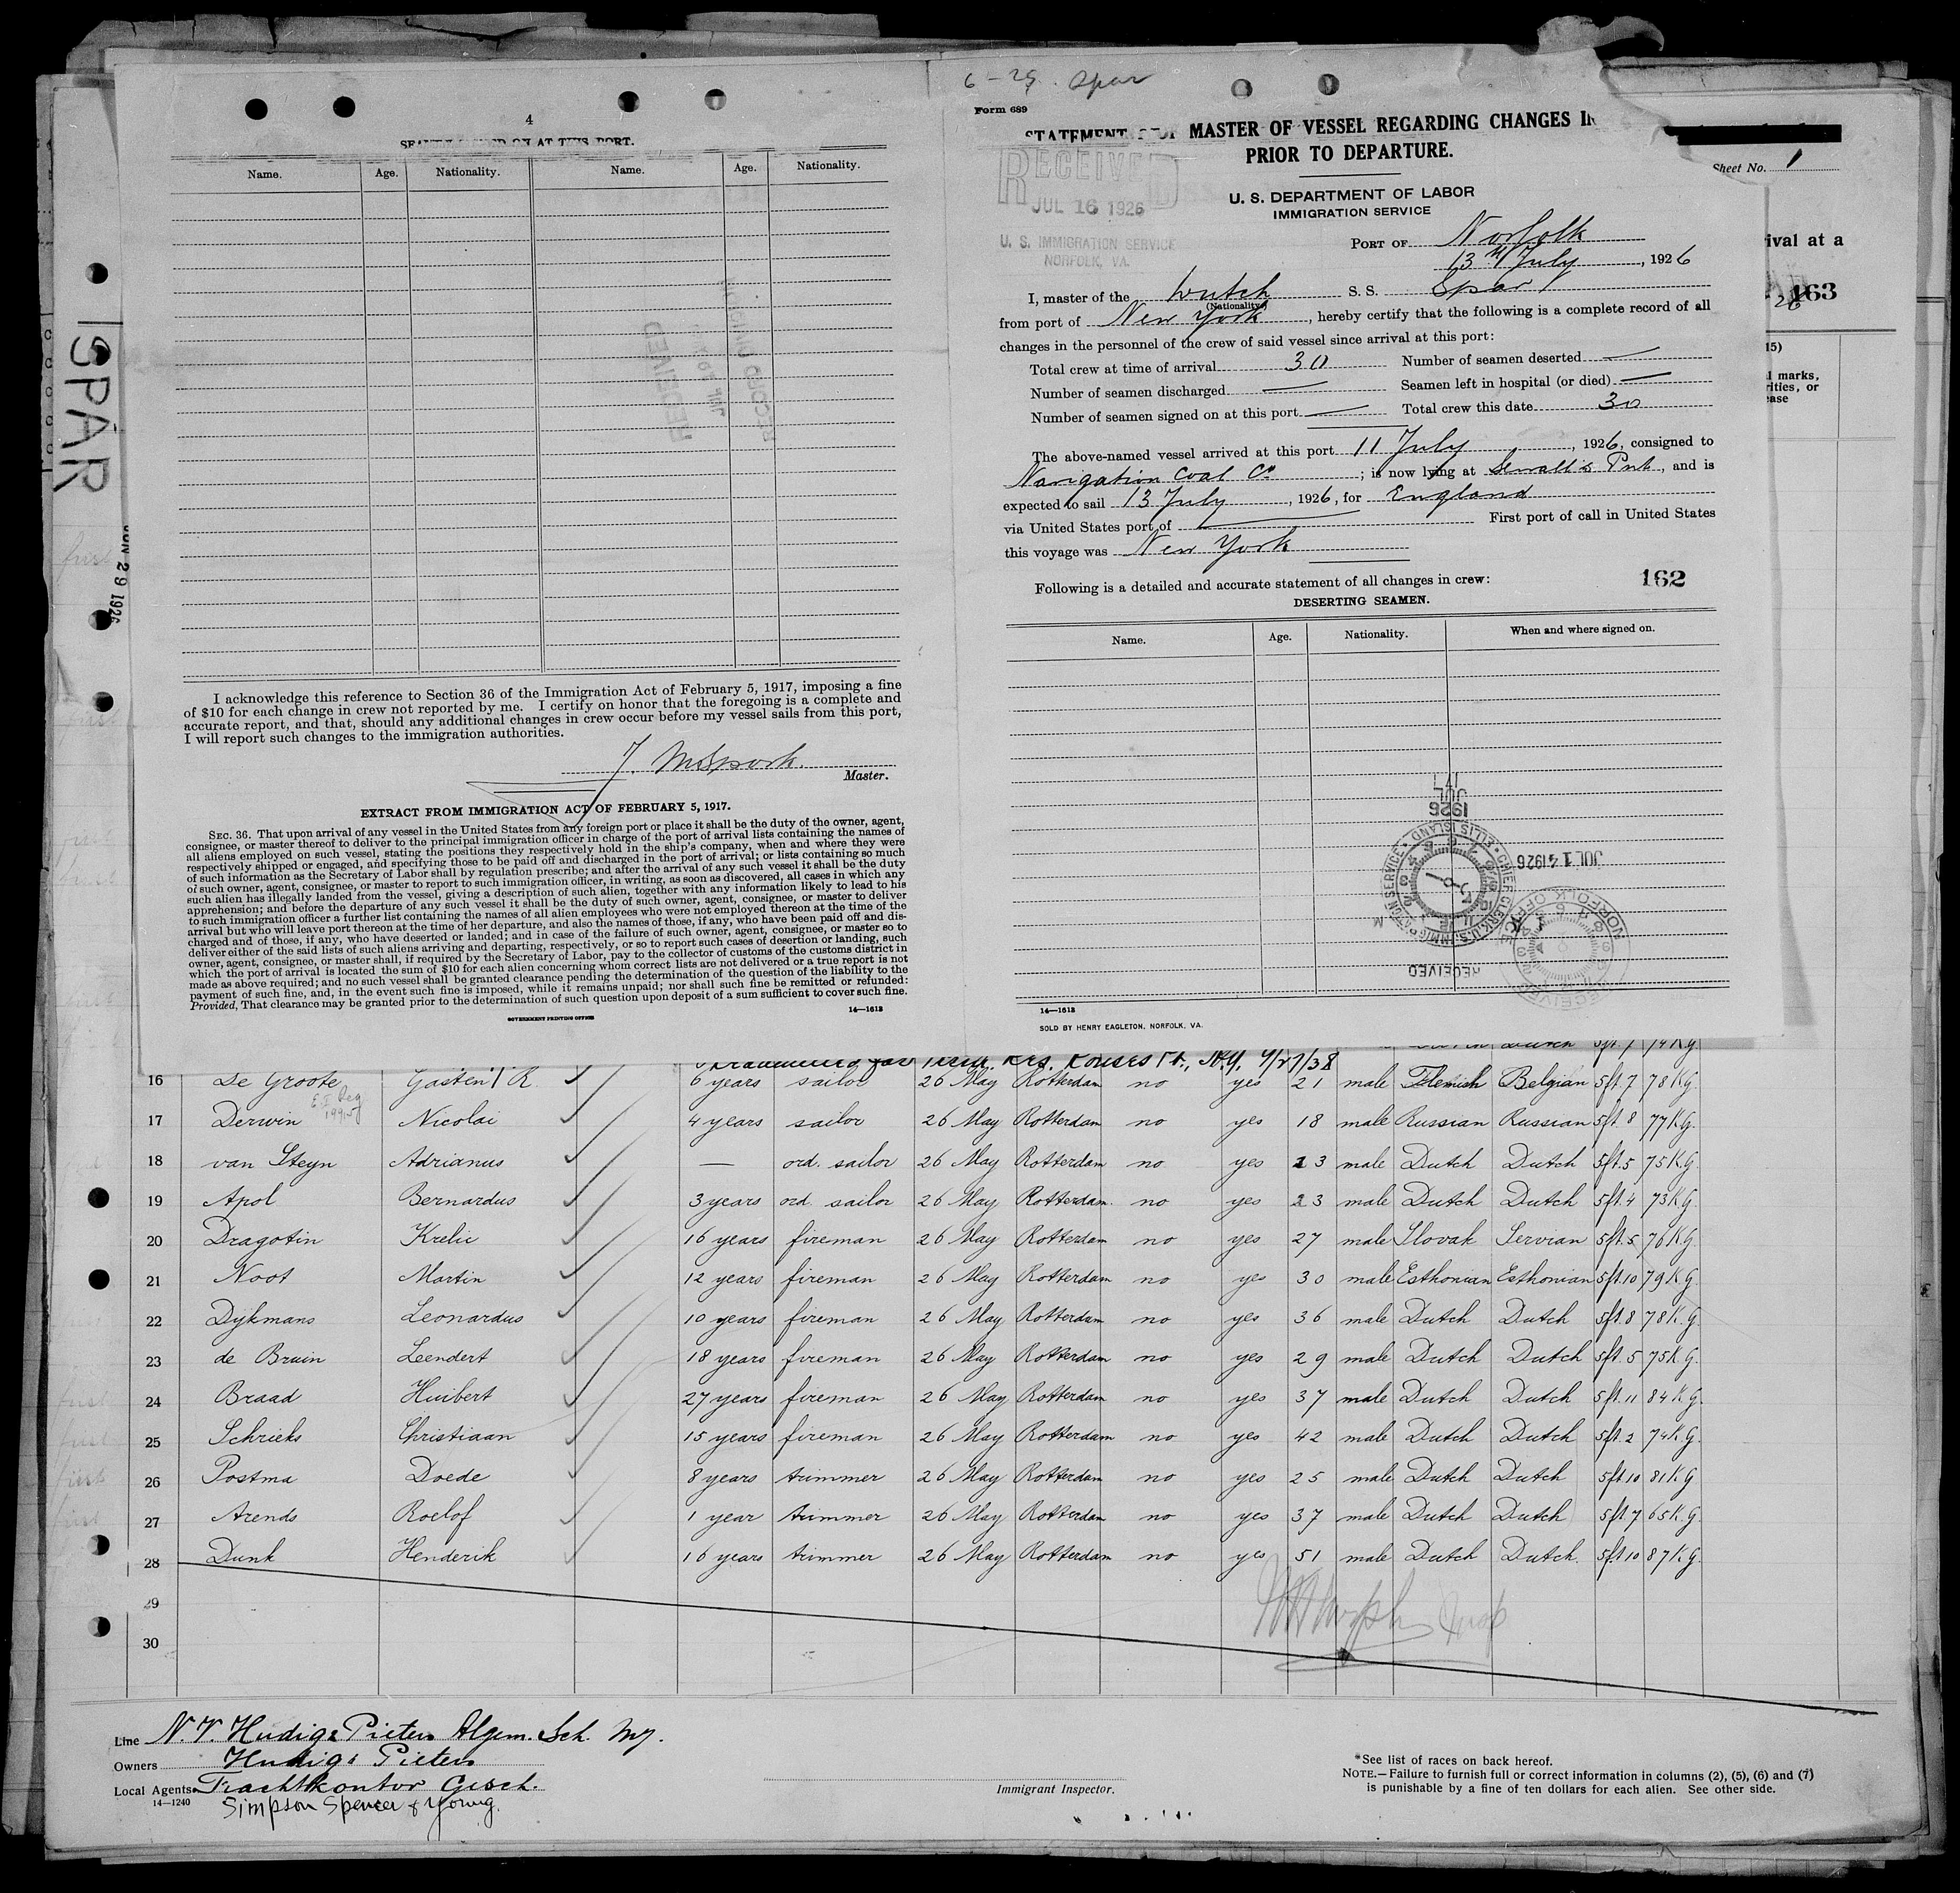 SPAR
JUN 29 1926
4
SEAMEN SIGNED ON AT THIS PORT.
Name. Age. Nationality. Name. Age. Nationality.
RECEIVED
RECORD DIVISION
I acknowledge this reference to Section 36 of the Immigration Act of February 5, 1917, imposing a fine
of $10 for each change in crew not reported by me. I certify on honor that the foregoing is a complete and
accurate report, and that, should any additional changes in crew occur before my vessel sails from this port,
I will report such changes to the immigration authorities.
Master.
EXTRACT FROM IMMIGRATION ACT OF FEBRUARY 5, 1917.
SEC. 36. That upon arrival of any vessel in the United States from any foreign port or place it shall be the duty of the owner, agent,
consignee, or master thereof to deliver to the principal immigration officer in charge of the port of arrival lists containing the names of
all aliens employed on such vessel, stating the positions they respectively hold in the ship's company, when and where they were
respectively shipped or engaged, and specifying those to be paid off and discharged in the port of arrival; or lists containing so much
of such information as the Secretary of Labor shall by regulation prescribe; and after the arrival of any such vessel it shall be the duty
of such owner, agent, consignee, or master to report to such immigration officer, in writing, as soon as discovered, all cases in which any
such alien has illegally landed from the vessel, giving a description of such alien, together with any information likely to lead to his
apprehension; and before the departure of any such vessel it shall be the duty of such owner, agent, consignee, or master to deliver
to such immigration officer a further list containing the names of all alien employees who were not employed thereon at the time of the
arrival but who will leave port thereon at the time of her departure, and also the names of those, if any, who have been paid off and dis-
charged and of those, if any, who have deserted or landed; and in case of the failure of such owner, agent, consignee, or master so to
deliver either of the said lists of such aliens arriving and departing, respectively, or so to report such cases of desertion or landing, such
owner, agent, consignee, or master shall, if required by the Secretary of Labor, pay to the collector of customs of the customs district in
which the port of arrival is located the sum of $10 for each alien concerning whom correct lists are not delivered or a true report is not
made as above required; and no such vessel shall be granted clearance pending the determination of the question of the liability to the
payment of such fine, and, in the event such fine is imposed, while it remains unpaid; nor shall such fine be remitted or refunded:
Provided, That clearance may be granted prior to the determination of such question upon deposit of a sum sufficient to cover such fine.
GOVERNMENT PRINTING OFFICE 14—1613
6-29. Spar
Form 689
STATEMENT OF MASTER OF VESSEL REGARDING CHANGES IN
PRIOR TO DEPARTURE.
RECEIVED
JUL 16 1926
U. S. IMMIGRATION SERVICE
NORFOLK, VA.
U. S. DEPARTMENT OF LABOR
IMMIGRATION SERVICE
PORT OF Norfolk
13th July, 1926
I, master of the Dutch S. S. Spar
(Nationality)
from port of New York, hereby certify that the following is a complete record of all
changes in the personnel of the crew of said vessel since arrival at this port:
Total crew at time of arrival 30 Number of seamen deserted —
Number of seamen discharged — Seamen left in hospital (or died) —
Number of seamen signed on at this port — Total crew this date 30
The above-named vessel arrived at this port 11 July, 1926, consigned to
Navigation Coal Co; is now lying at Sewall's Pnt, and is
expected to sail 13 July, 1926, for England
via United States port of — First port of call in United States
this voyage was New York
Following is a detailed and accurate statement of all changes in crew:
162
DESERTING SEAMEN.
Name. Age. Nationality. When and where signed on.
1926
JUL
JUL 14 1926
CHIEF CLERK U.S. IMMIGRATION SERVICE • ELLIS ISLAND
RECEIVED
NORFOLK OFFICE
RECEIVED
14—1613
SOLD BY HENRY EAGLETON, NORFOLK, VA.
Sheet No. 1
ival at a
163
15)
l marks,
rities, or
ease
Rouses Pt., N.Y. 9/27/38
Dutch Dutch 5ft. 7 74 K.G.
16 De Groote Gasten R. 6 years sailor 26 May Rotterdam no yes 21 male Flemish Belgian 5ft. 7 78 K.G.
17 Derwin Nicolai 4 years sailor 26 May Rotterdam no yes 18 male Russian Russian 5ft. 8 77 K.G.
18 van Steyn Adrianus — ord. sailor 26 May Rotterdam no yes 23 male Dutch Dutch 5ft. 5 75 K.G.
19 Apol Bernardus 3 years ord. sailor 26 May Rotterdam no yes 23 male Dutch Dutch 5ft. 4 73 K.G.
20 Dragotin Krelic 16 years fireman 26 May Rotterdam no yes 27 male Slovak Servian 5ft. 5 76 K.G.
21 Noot Martin 12 years fireman 26 May Rotterdam no yes 30 male Esthonian Esthonian 5ft. 10 79 K.G.
22 Dijkmans Leonardus 10 years fireman 26 May Rotterdam no yes 36 male Dutch Dutch 5ft. 8 78 K.G.
23 de Bruin Leendert 18 years fireman 26 May Rotterdam no yes 29 male Dutch Dutch 5ft. 5 75 K.G.
24 Braad Huibert 27 years fireman 26 May Rotterdam no yes 37 male Dutch Dutch 5ft. 11 84 K.G.
25 Schrieks Christiaan 15 years fireman 26 May Rotterdam no yes 42 male Dutch Dutch 5ft. 2 74 K.G.
26 Postma Doede 8 years trimmer 26 May Rotterdam no yes 25 male Dutch Dutch 5ft. 10 81 K.G.
27 Arends Roelof 1 year trimmer 26 May Rotterdam no yes 37 male Dutch Dutch 5ft. 7 65 K.G.
28 Dunk Henderik 16 years trimmer 26 May Rotterdam no yes 51 male Dutch Dutch 5ft. 10 87 K.G.
29
30
Line N.V. Hudig & Pieters Algem. Sch. Mij.
Owners Hudig & Pieters
Local Agents Frachtkontor Gesch.
14—1240 Simpson Spence & Young.
Immigrant Inspector.
*See list of races on back hereof.
NOTE.—Failure to furnish full or correct information in columns (2), (5), (6) and (7)
is punishable by a fine of ten dollars for each alien. See other side.